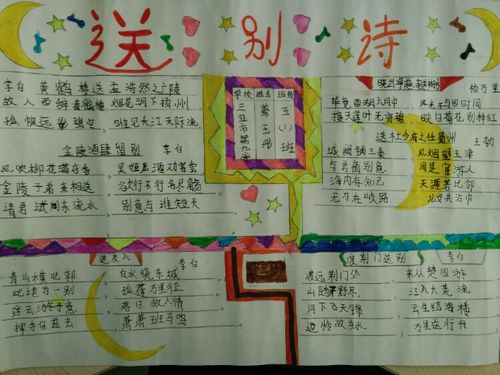 送别诗
李白 黄鹤楼送孟浩然之广陵
故人西辞黄鹤楼 烟花三月下扬州
孤帆远影碧空 唯见长江天际流
金陵酒肆留别 李白
风吹柳花满店香 吴姬压酒劝客尝
金陵子弟来相送 欲行不行各尽觞
请君试问东流水 别意与谁短长
学校 姓名 班级
三亚市第九小
五(1)班
晓出净慈寺 杨万里
毕竟西湖六月中 风光不与四时同
接天莲叶无穷碧 映日荷花别样红
送杜少府之任蜀州 王勃
城阙辅三秦 风烟望五津
与君离别意 同是宦游人
海内存知己 天涯若比邻
无为在歧路 儿女共沾巾
送友人 李白
青山横北郭 白水绕东城
此地为一别 孤蓬万里征
浮云游子意 落日故人情
挥手自兹去 萧萧班马鸣
渡荆门送别 李白
渡远荆门外 来从楚国游
山随平野尽 江入大荒流
月下飞天镜 云生结海楼
仍怜故乡水 万里送行舟